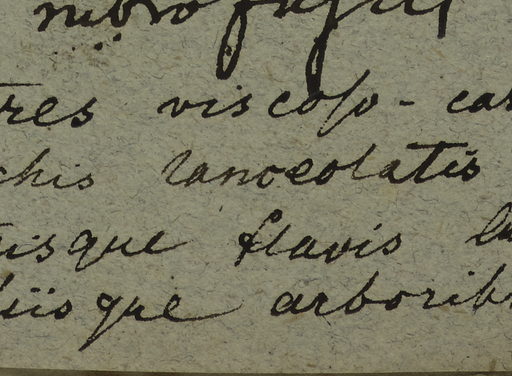 rubro fus
tres viscoso - cas
chis lanceolatis
tisque flavis la
liisque arborib